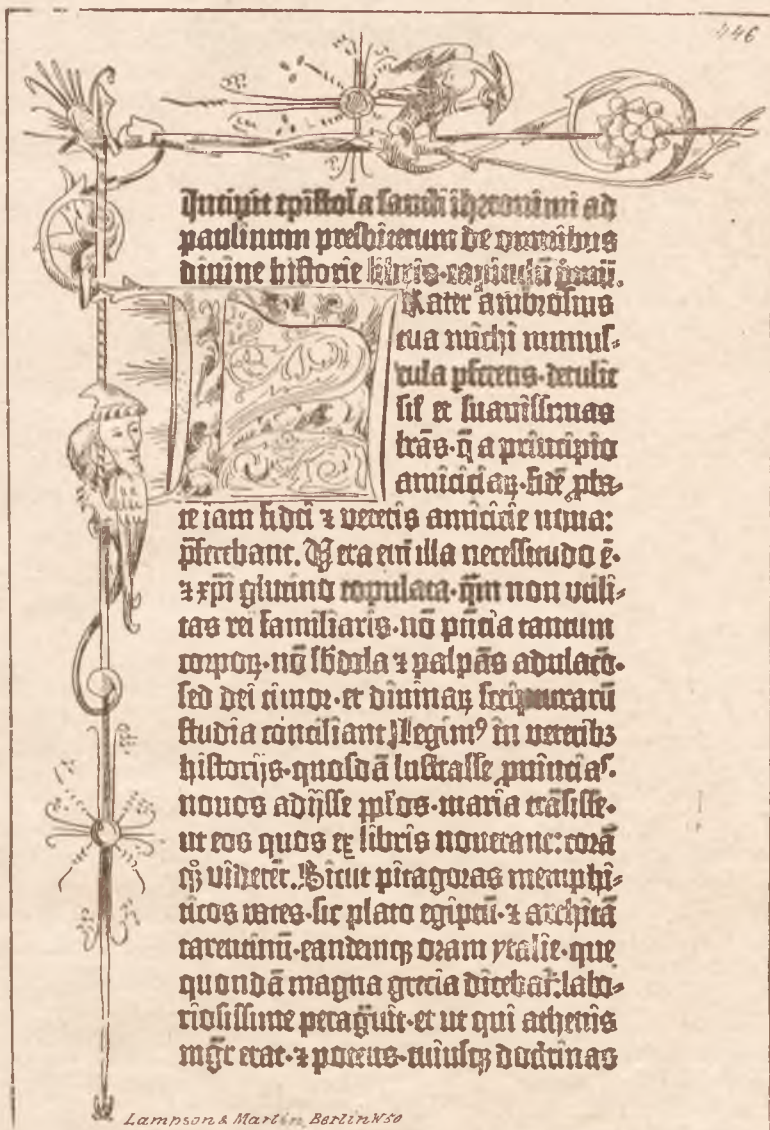 446
Incipit epistola sancti iheronimi ad
paulinum presbiterum de omnibus
divine historie libris·capitulũ pͥmũ.
Frater ambrosius
tua michi munus-
cula ꝑferens·detulit
siml̕ et suavissimas
lrãs·q̃ a principio
amiciciaꝝ·fidẽ ꝓba-
te iam fidei ⁊ veteris amicicie nova:
p̃ferebant. Vera eni̅ illa necessitudo ẽ·
⁊ xp̅i glutino copulata·qm̃ non utili-
tas rei familiaris·nõ pñcia tantum
corpoꝝ·nõ sb̅dola ⁊ palpãs adulacõ·
sed dei timor·et divinaꝝ scripturarũ
studia conciliant. Legimꝰ in veteribꝫ
historijs·quosdã lustrasse ꝓvincias·
novos adijsse pp̅los·maria trãsisse·
ut eos quos ex libris noverant: corã
qꝫ viderẽt. Sicut pitagoras memphi-
ticos vates·sic plato egiptũ·⁊ architã
tarentinũ·eandemqꝫ oram ytalie·que
quondã magna grecia dicebat̃: labo-
riosissime peragͣvit·et ut qui athenis
mgr̃ erat·⁊ potens·cuiusqꝫ doctrinas
Lampson & Martin Berlin W50